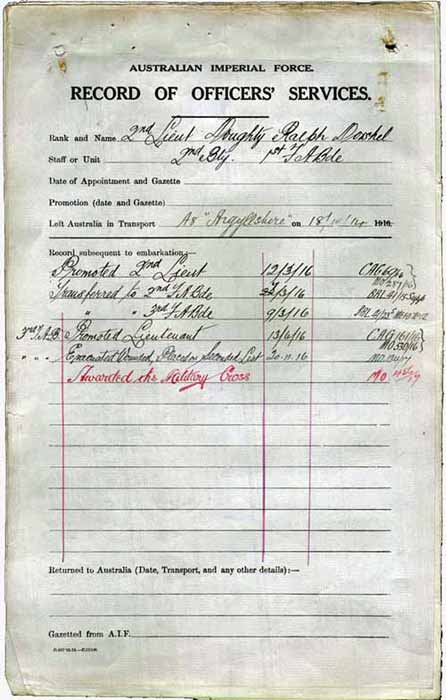 AUSTRALIAN IMPERIAL FORCE.
RECORD OF OFFICERS' SERVICES.
Rank and Name 2nd Lieut Doughty Ralph Dorschel
Staff or Unit 2nd Bty. 1st F A Bde
Date of Appointment and Gazette
Promotion (date and Gazette)
Left Australia in Transport A8 "Argyllshire" on 18/10/14 1916
Record subsequent to embarkation:—
Promoted 2nd Lieut 12/3/16
Transferred to 2nd F A Bde /3/16
" " 3rd F A Bde 9/3/16
3rd F.A.B. Promoted Lieutenant 13/6/16
" " " Evacuated Wounded, Placed on Seconded List 20.11.16
Awarded the Military Cross MO
Returned to Australia (Date, Transport, and any other details):—
Gazetted from A.I.F.